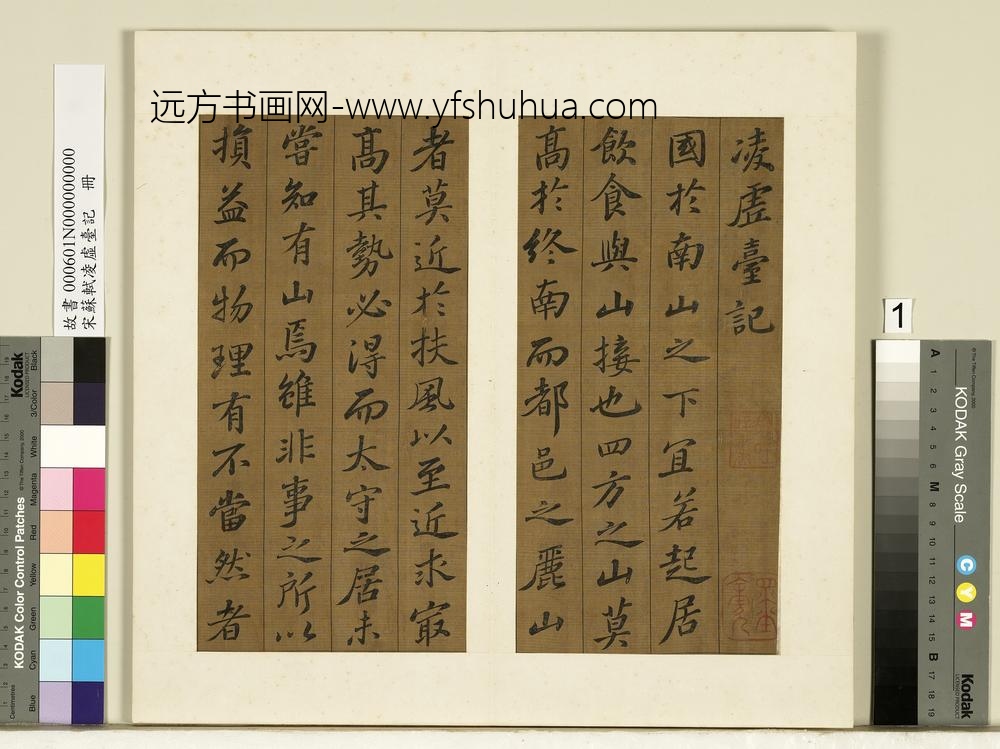 远方书画网-www.yfshuhua.com
凌虛臺記
國於南山之下宜若起居
飲食與山接也四方之山莫
髙於終南而都邑之麗山
者莫近於扶風以至近求冣
髙其勢必得而太守之居未
嘗知有山焉雖非事之所以
損益而物理有不當然者
故書000601N000000000
宋蘇軾凌虛臺記 冊
1
Kodak
KODAK Color Control Patches
© The Tiffen Company, 2000
Centimetres
Blue
Cyan
Green
Yellow
Red
Magenta
White
3/Color
Black
KODAK Gray Scale
© The Tiffen Company, 2000
C Y M
Kodak
LICENSED PRODUCT
A 1 2 3 4 5 6 M 8 9 10 11 12 13 14 15 B 17 18 19